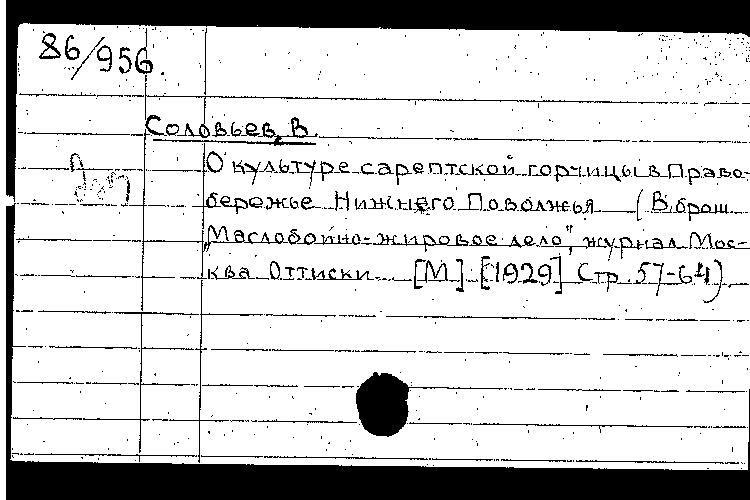 86/956.
Соловьев, В.
О культуре сарептской горчицы в Право-
бережье Нижнего Поволжья (В брош.
„Маслобойно-жировое дело", журнал Мос-
ква Оттиски. [М]. [1929] Стр. 57-64).